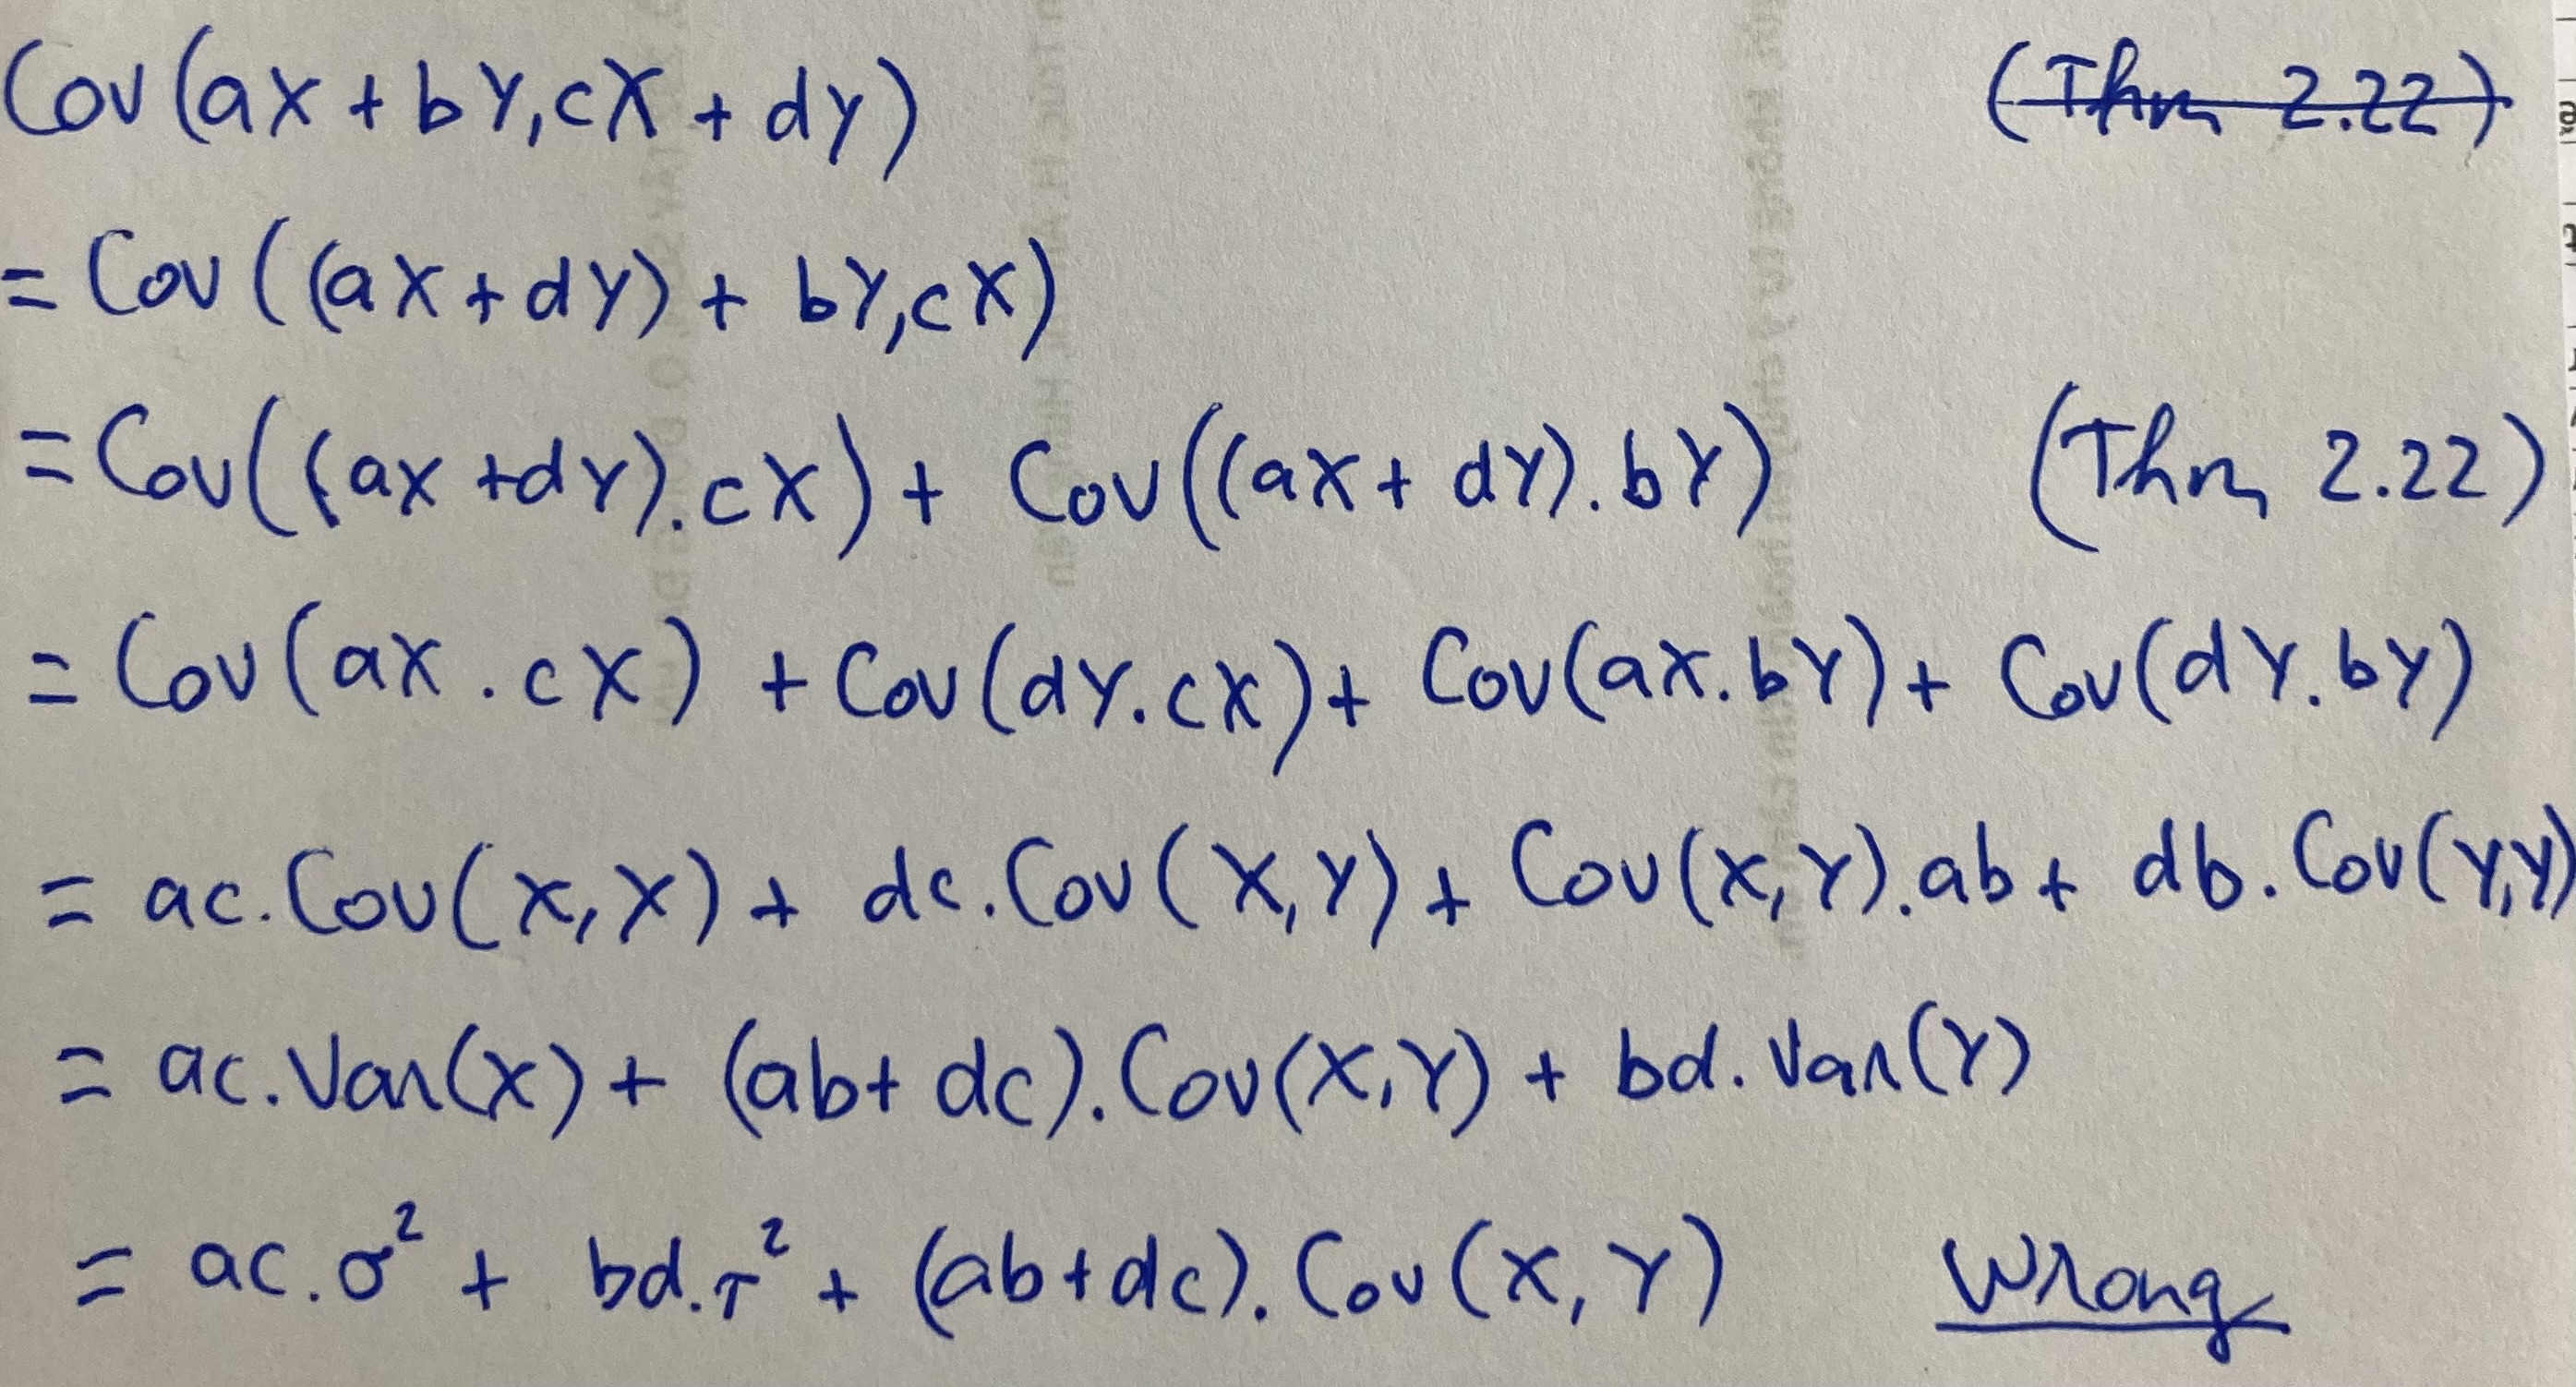 Cov(aX + bY, cX + dY) (Thm 2.22)
= Cov((aX + dY) + bY, cX)
= Cov((aX + dY).cX) + Cov((aX + dY).bY) (Thm 2.22)
= Cov(aX.cX) + Cov(dY.cX) + Cov(aX.bY) + Cov(dY.bY)
= ac.Cov(X,X) + dc.Cov(X,Y) + Cov(X,Y).ab + db.Cov(Y,Y)
= ac.Var(X) + (ab + dc).Cov(X,Y) + bd.Var(Y)
= ac.σ² + bd.τ² + (ab + dc).Cov(X,Y) Wrong